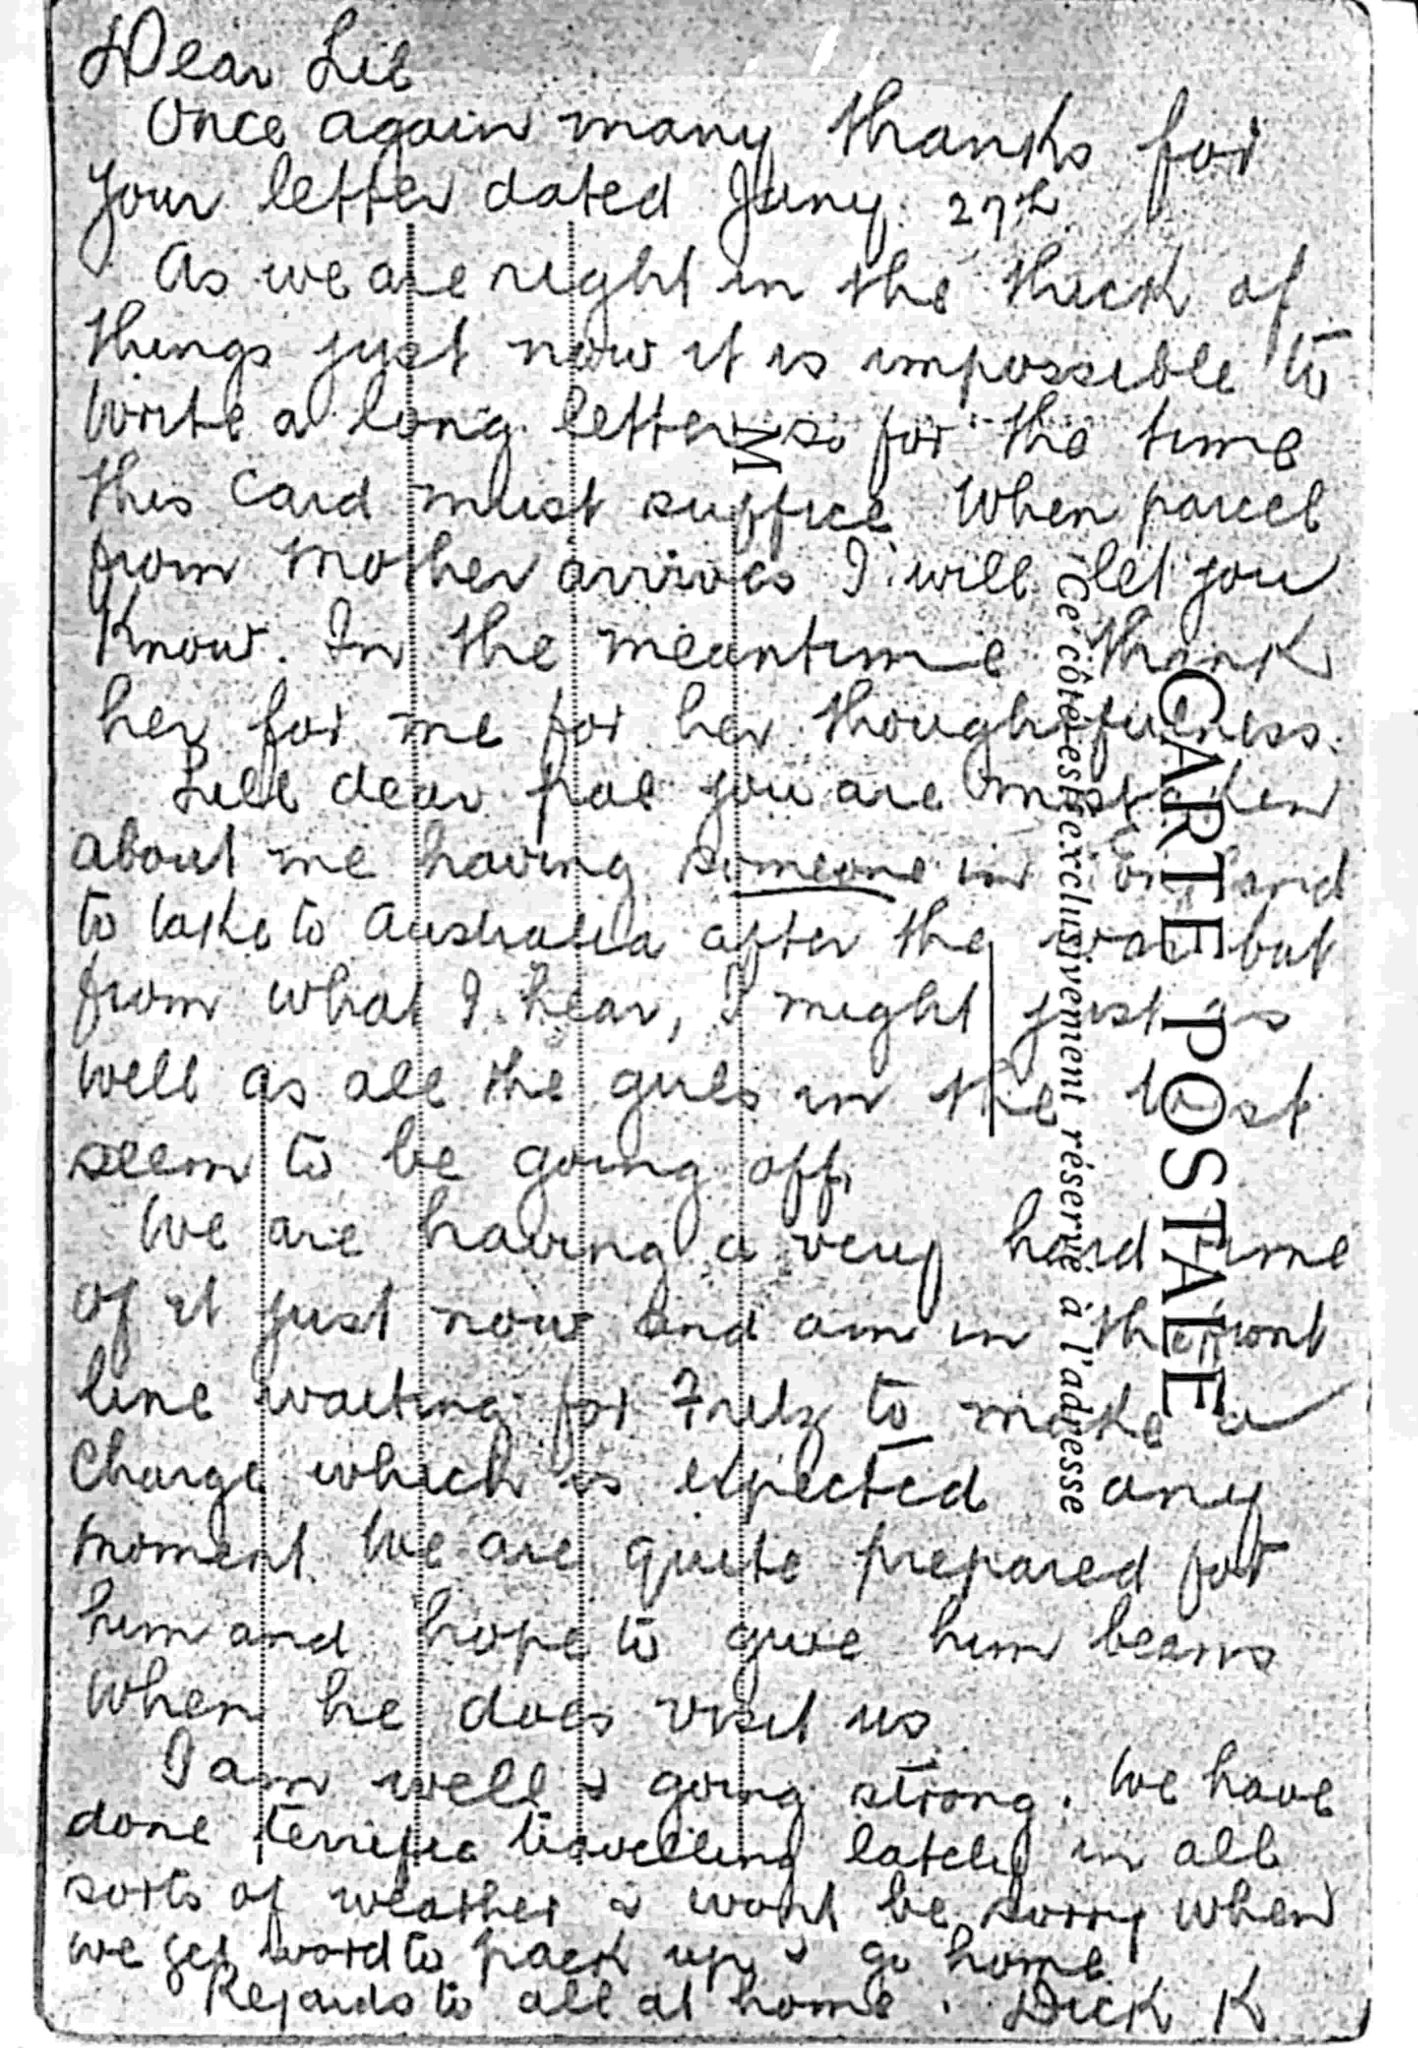 Dear Lil
Once again many thanks for
your letter dated Jany. 27th
As we are right in the thick of
things just now it is impossible to
write a long letter so for the time
this card must suffice. When parcel
from Mother arrives I will let you
know. In the meantime thank
her for me for her thoughtfulness.
Lill dear pal you are mistaken
about me having someone in England
to take to Australia after the war but
from what I hear, I might just as
well as all the girls in the West
seem to be going off.
We are having a very hard time
of it just now and am in the front
line waiting for Fritz to make a
charge which is expected any
moment. We are quite prepared for
him and hope to give him beans
when he does visit us
I am well & going strong. We have
done terrific travelling lately in all
sorts of weather & wont be sorry when
we get word to pack up & go home
Regards to all at home. Dick K
M
CARTE POSTALE
Ce côté est exclusivement réservé à l'adresse